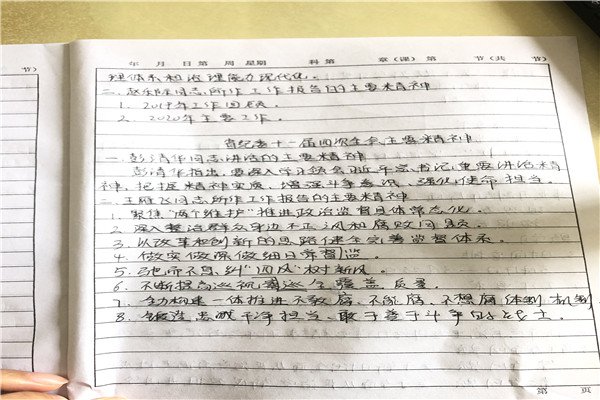 节)
年 月 日 第 周 星期 科 第 章(课) 第 节(共 节)
理体系和治理能力现代化。
二、赵乐际同志所作工作报告的主要精神
1. 2019年工作回顾
2. 2020年主要工作。
省纪委十一届四次全会主要精神
一、彭清华同志讲话的主要精神
彭清华指出,要深入学习领会 总书记重要讲话精
神,把握精神实质,增强斗争意识,强化使命担当。
二、王雁飞同志所作工作报告的主要精神
1. 聚焦"两个维护"推进政治监督具体常态化。
2. 深入整治群众身边不正之风和腐败问题。
3. 以改革和创新的思路健全完善监督体系。
4. 做实做深做细日常监督。
5. 驰而不息纠"四风"树新风。
6. 不断提高巡视巡察全覆盖质量。
7. 全力构建一体推进不敢腐、不能腐、不想腐体制机制
8. 锻造忠诚干净担当、敢于善于斗争的战士。
第 页